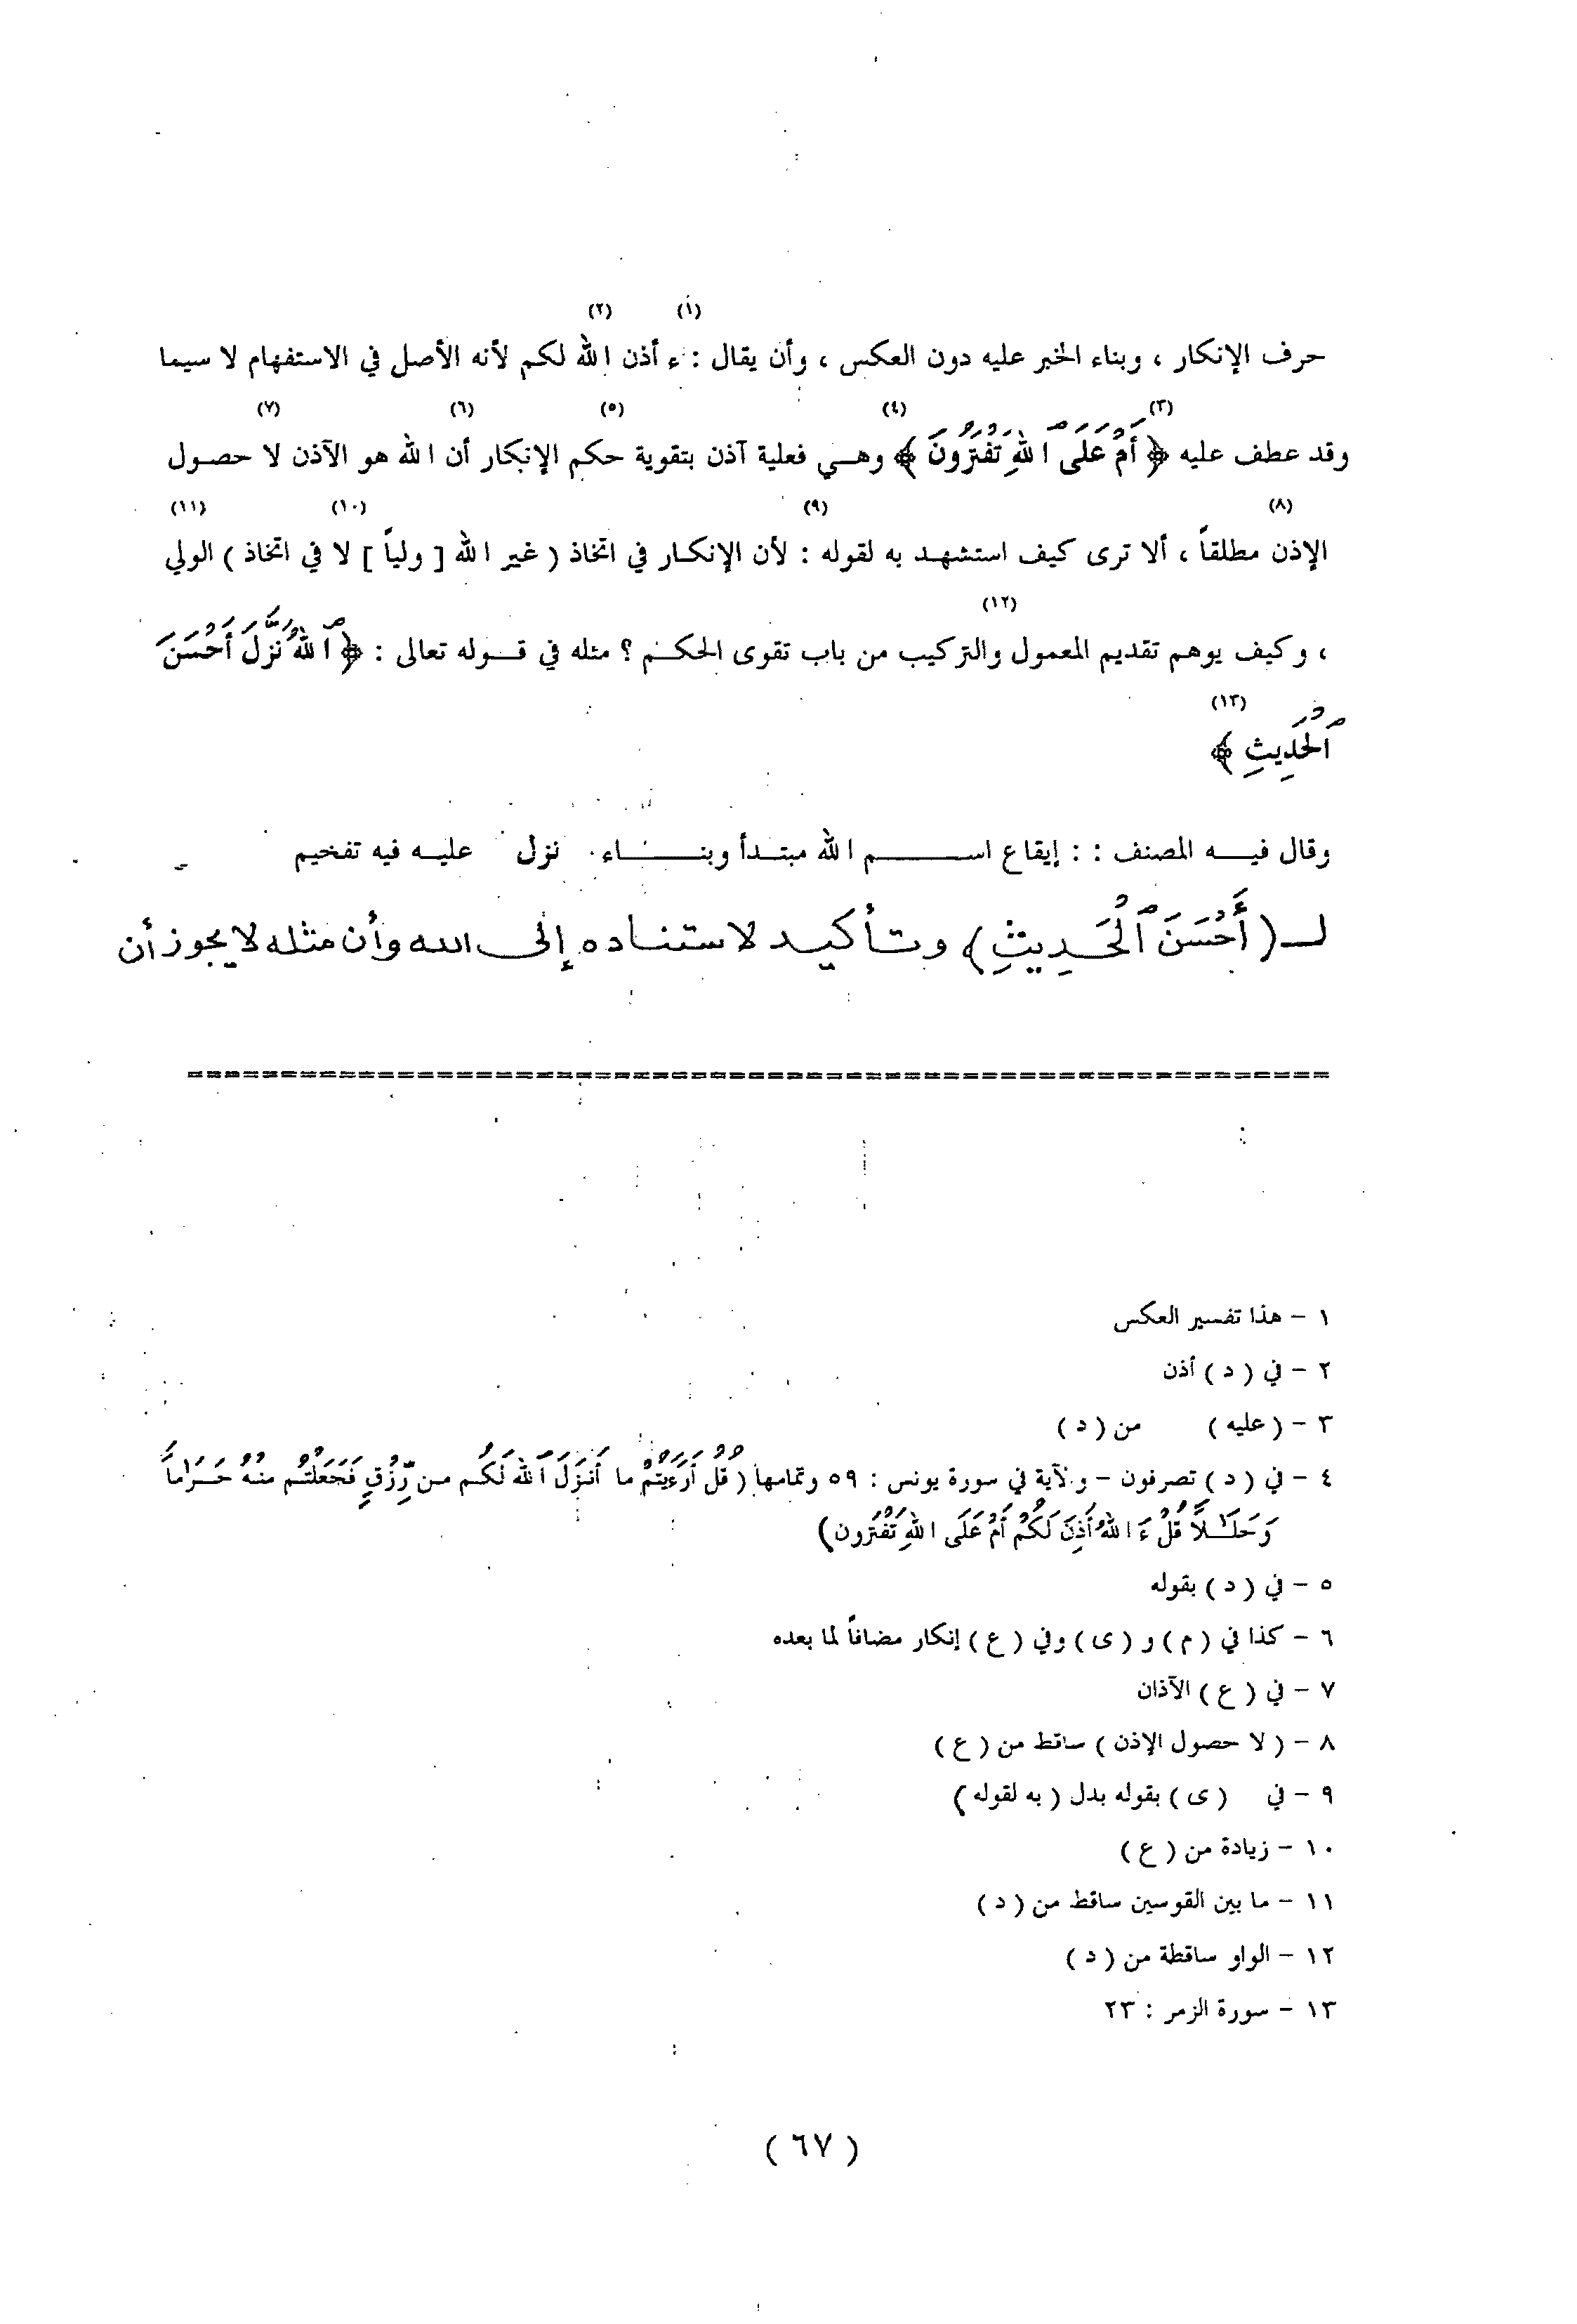 (١) (٢)
حرف الإنكار ، وبناء الخبر عليه دون العكس ، وأن يقال : ء أذن الله لكم لأنه الأصل في الاستفهام لا سيما
(٣) (٤) (٥) (٦) (٧)
وقد عطف عليه ﴿ أَمْ عَلَى ٱللَّهِ تَفْتَرُونَ ﴾ وهي فعلية آذن بتقوية حكم الإنكار أن الله هو الآذن لا حصول
(٨) (٩) (١٠) (١١)
الإذن مطلقاً ، ألا ترى كيف استشهد به لقوله : لأن الإنكار في اتخاذ ( غير الله [ ولياً ] لا في اتخاذ ) الولي
(١٢)
، وكيف يوهم تقديم المعمول والتركيب من باب تقوى الحكم ؟ مثله في قوله تعالى : ﴿ ٱللَّهُ نَزَّلَ أَحْسَنَ
(١٣)
ٱلْحَدِيثِ ﴾
وقال فيه المصنف : : إيقاع اسم الله مبتدأ وبناء نزل عليه فيه تفخيم
لـ ( أَحْسَنَ ٱلْحَدِيثِ ) وتأكيد لاستناده إلى الله وأن مثله لا يجوز أن
١ - هذا تفسير العكس
٢ - في ( د ) أذن
٣ - ( عليه ) من ( د )
٤ - في ( د ) تصرفون - ولآية في سورة يونس : ٥٩ وتمامها ( قُلْ أَرَءَيْتُمْ ما أَنزَلَ ٱللَّه لَكُم من رِّزْقٍ فَجَعَلْتُم منْهُ حَرَاماً
وَحَلَـٰلاً قُلْ ءَاللَّهُ أَذِنَ لَكُمْ أَمْ عَلَى اللَّهِ تَفْتَرون )
٥ - في ( د ) بقوله
٦ - كذا في ( م ) و ( ى ) وفي ( ع ) إنكار مضافاً لما بعده
٧ - في ( ع ) الآذان
٨ - ( لا حصول الإذن ) ساقط من ( ع )
٩ - في ( ى ) بقوله بدل ( به لقوله )
١٠ - زيادة من ( ع )
١١ - ما بين القوسين ساقط من ( د )
١٢ - الواو ساقطة من ( د )
١٣ - سورة الزمر : ٢٣
( ٦٧ )